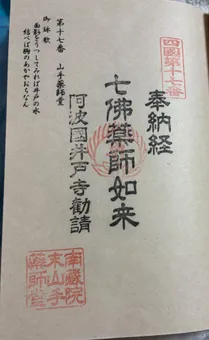 四國第十七番
奉納経
七佛薬師如来
阿波國井戸寺勧請
第十七番 山手薬師堂
御詠歌
面影をうつしてみれば井戸の水
結べば胸のあかやおちなん
南蔵院
末山手
薬師堂